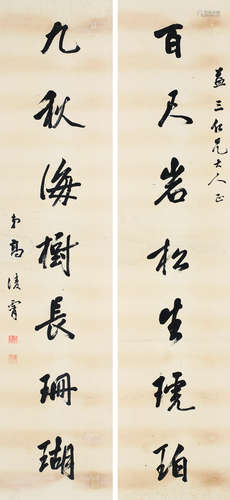 益三仁兄大人正
百尺岩松生琥珀
九秋海樹長珊瑚
弟高凌霄